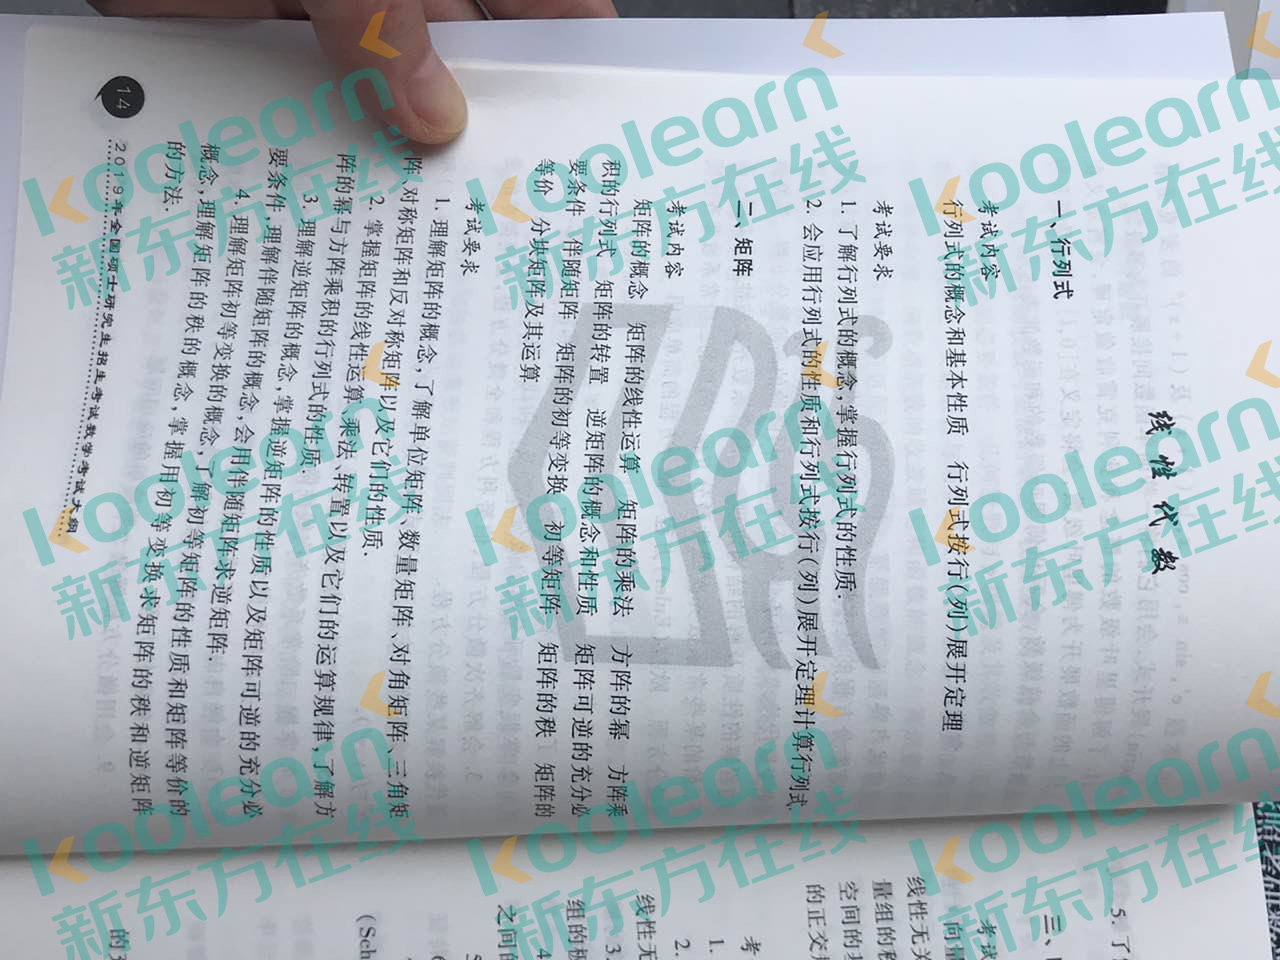 线性代数
一、行列式
考试内容
行列式的概念和基本性质 行列式按行(列)展开定理
考试要求
1. 了解行列式的概念,掌握行列式的性质.
2. 会应用行列式的性质和行列式按行(列)展开定理计算行列式.
二、矩阵
考试内容
矩阵的概念 矩阵的线性运算 矩阵的乘法 方阵的幂 方阵乘
积的行列式 矩阵的转置 逆矩阵的概念和性质 矩阵可逆的充分必
要条件 伴随矩阵 矩阵的初等变换 初等矩阵 矩阵的秩 矩阵的
等价 分块矩阵及其运算
考试要求
1. 理解矩阵的概念,了解单位矩阵、数量矩阵、对角矩阵、三角矩
阵、对称矩阵和反对称矩阵以及它们的性质.
2. 掌握矩阵的线性运算、乘法、转置以及它们的运算规律,了解方
阵的幂与方阵乘积的行列式的性质.
3. 理解逆矩阵的概念,掌握逆矩阵的性质以及矩阵可逆的充分必
要条件,理解伴随矩阵的概念,会用伴随矩阵求逆矩阵.
4. 理解矩阵初等变换的概念,了解初等矩阵的性质和矩阵等价的
概念,理解矩阵的秩的概念,掌握用初等变换求矩阵的秩和逆矩阵
的方法.
14
2019年全国硕士研究生招生考试数学考试大纲
5. 了
三、
考试
向量
线性无关
量组的秩
空间的基
的正交规
考
1.
2.
线性无
3.
组的极
4.
之间的
5
6
(Sch
的充
koolearn
新东方在线
koolearn
新东方在线
koolearn
新东方在线
koolearn
新东方在线
koolearn
新东方在线
koolearn
新东方在线
koolearn
新东方在线
koolearn
新东方在线
koolearn
新东方在线